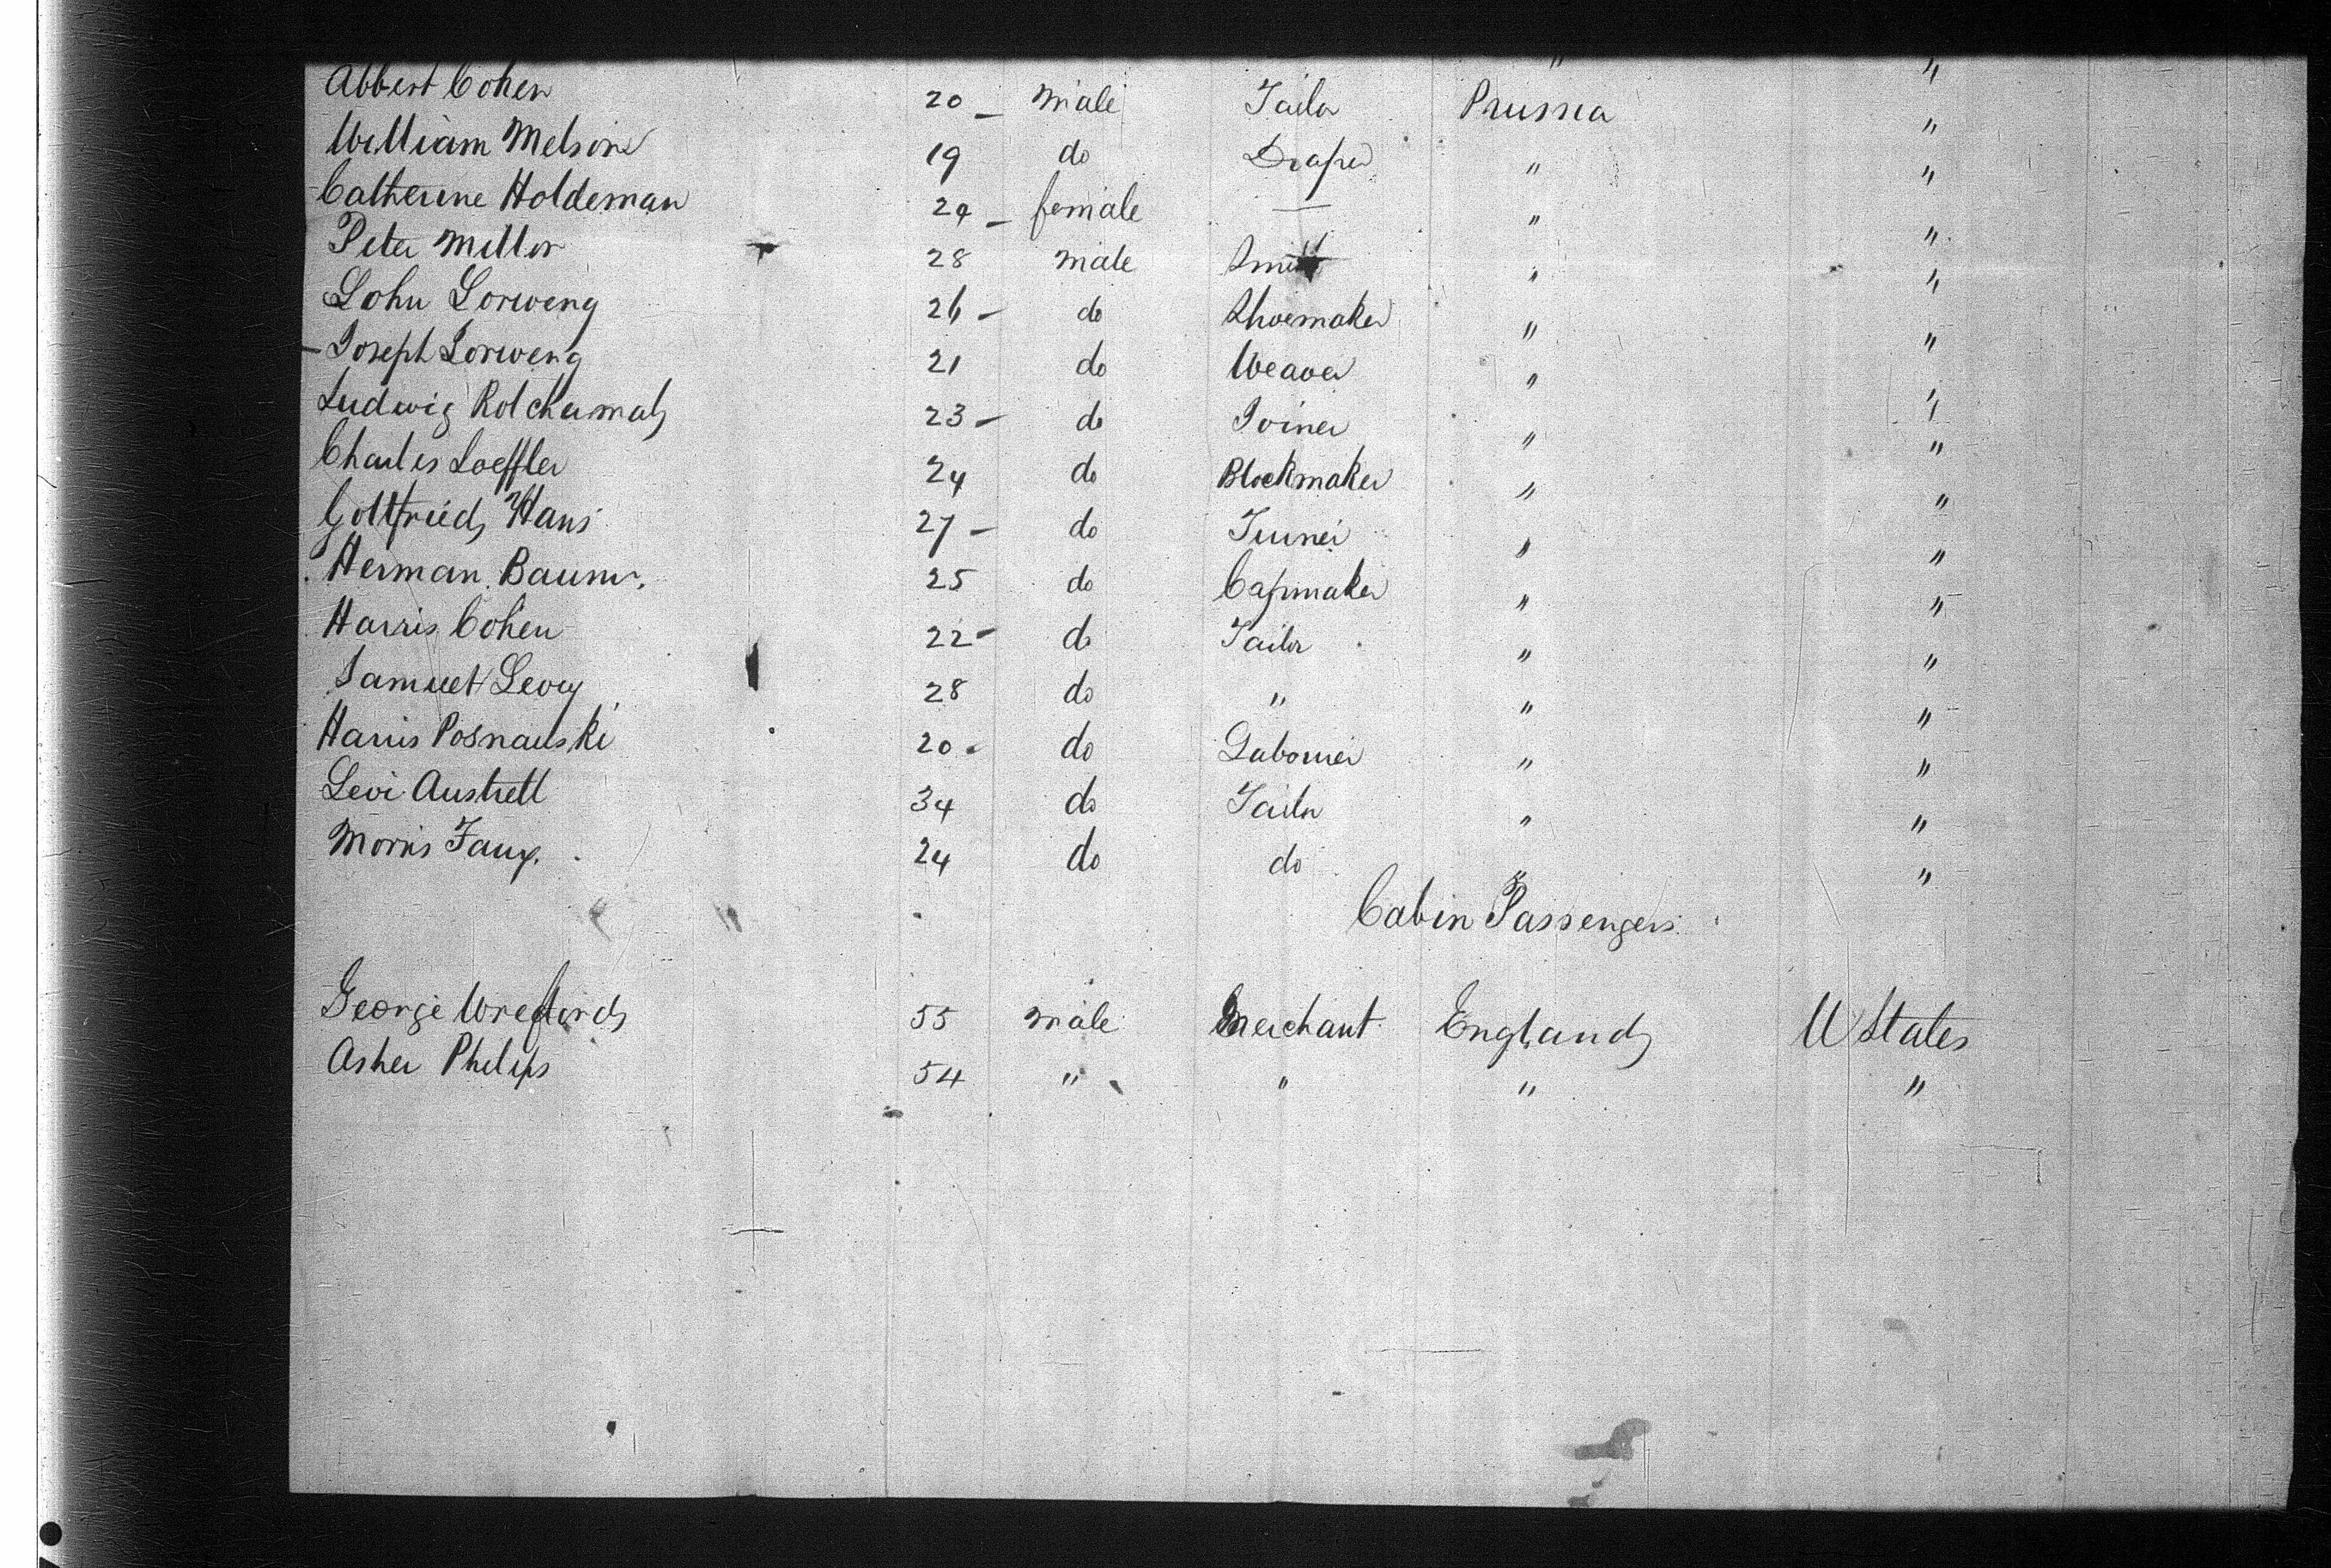 " "
Abbert Cohen 20 - male Tailor Prussia "
William Melson 19 do Draper " "
Catherine Holdeman 24 - female — " "
Peter Miller 28 male Smith " "
Lohn Lorweng 26 - do Shoemaker " "
Joseph Lorweng 21 do Weaver " "
Ludwig 23 - do Joiner " "
Charles Loeffler 24 do Blockmaker " "
Gottfried Hans 27 - do Turner " "
Herman Baum 25 do Capmaker " "
Harris Cohen 22 - do Tailor " "
Samuel Levy 28 do " " "
Harris Posnanski 20 - do Labourer " "
Levi Austrell 34 do Tailor " "
Morris 24 do do " "
Cabin Passengers
George Wreford 55 male Merchant England U States
Asher Philips 54 " " " "